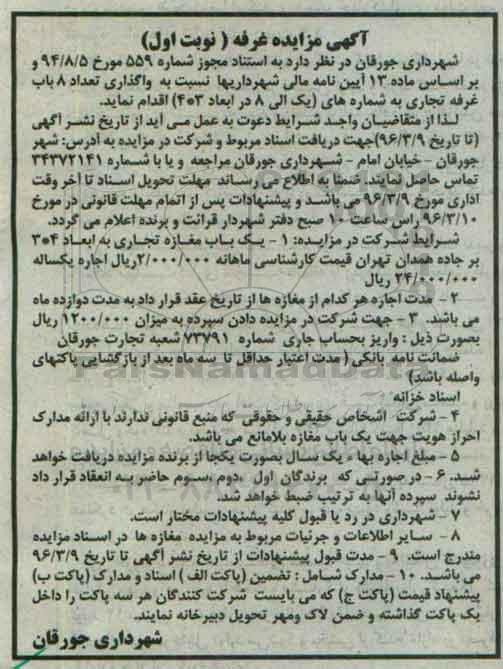 آگهی مزایده غرفه ( نوبت اول)
شهرداری جورقان در نظر دارد به استناد مجوز شماره ۵۵۹ مورخ ۹۴/۸/۵ و
بر اساس ماده ۱۳ آیین نامه مالی شهرداریها نسبت به واگذاری تعداد ۸ باب
غرفه تجاری به شماره های (یک الی ۸ در ابعاد ۳*۴) اقدام نماید.
لـذا از متقاضیـان واجـد شـرایط دعوت به عمل مـی آید از تاریخ نشـر آگهی
(تا تاریخ ۹۶/۳/۹)جهت دریافت اسناد مربوط و شرکت در مزایده به آدرس: شهر
جورقان – خیابان امام – شـهرداری جورقان مراجعه و یا با شـماره ۳۴۳۷۲۱۴۱
تماس حاصل نمایند. ضمنا به اطلاع می رسـاند مهلت تحویل اسـناد تا آخر وقت
اداری مورخ ۹۶/۳/۹ می باشـد و پیشنهادات پس از اتمام مهلت قانونی در مورخ
۹۶/۳/۱۰ راس ساعت ۱۰ صبح دفتر شهردار قرائت و برنده اعلام می گردد.
شـرایط شـرکت در مزایـده: ۱ - یـک بـاب مغـازه تجـاری به ابعـاد ۴*۳
بر جاده همدان تهران قیمت کارشناسی ماهانه ۲/۰۰۰/۰۰۰ریال اجاره یکساله
۲۴/۰۰۰/۰۰۰ ریال
۲ – مدت اجاره هر کدام از مغازه ها از تاریخ عقد قرار داد به مدت دوازده ماه
می باشد. ۳ – جهت شرکت در مزایده دادن سپرده به میزان ۱۲۰۰/۰۰۰ ریال
بصورت ذیل : واریز بحساب جاری شماره ۷۳۷۹۱ شعبه تجارت جورقان
ضمانت نامه بانکی ( مدت اعتبار حداقل تا سه ماه بعد از بازگشایی پاکتهای
واصله باشد)
اسناد خزانه
۴ – شرکت اشخاص حقیقی و حقوقی که منبع قانونی ندارند با ارائه مدارک
احراز هویت جهت یک باب مغازه بلامانع می باشد.
۵ – مبلغ اجاره بهاء یک سـال بصورت یکجا از برنده مزایده دریافت خواهد
شـد. ۶ – در صورتـی که برندگان اول ،دوم ،سـوم حاضر بـه انعقاد قرار داد
نشوند سپرده آنها به ترتیب ضبط خواهد شد.
۷ – شهرداری در رد یا قبول کلیه پیشنهادات مختار است.
۸ – سـایر اطلاعات و جزئیات مربوط به مزایده مغازه ها در اسـناد مزایده
مندرج است. ۹ – مدت قبول پیشنهادات از تاریخ نشر آگهی تا تاریخ ۹۶/۳/۹
می باشـد. ۱۰ – مدارک شـامل : تضمین (پاکت الف ) اسناد و مدارک (پاکت ب)
پیشنهاد قیمت (پاکت ج) که می بایست شرکت کنندگان هر سه پاکت را داخل
یک پاکت گذاشته و ضمن لاک ومهر تحویل دبیرخانه نمایند.
شهرداری جورقان
ParsNamadData